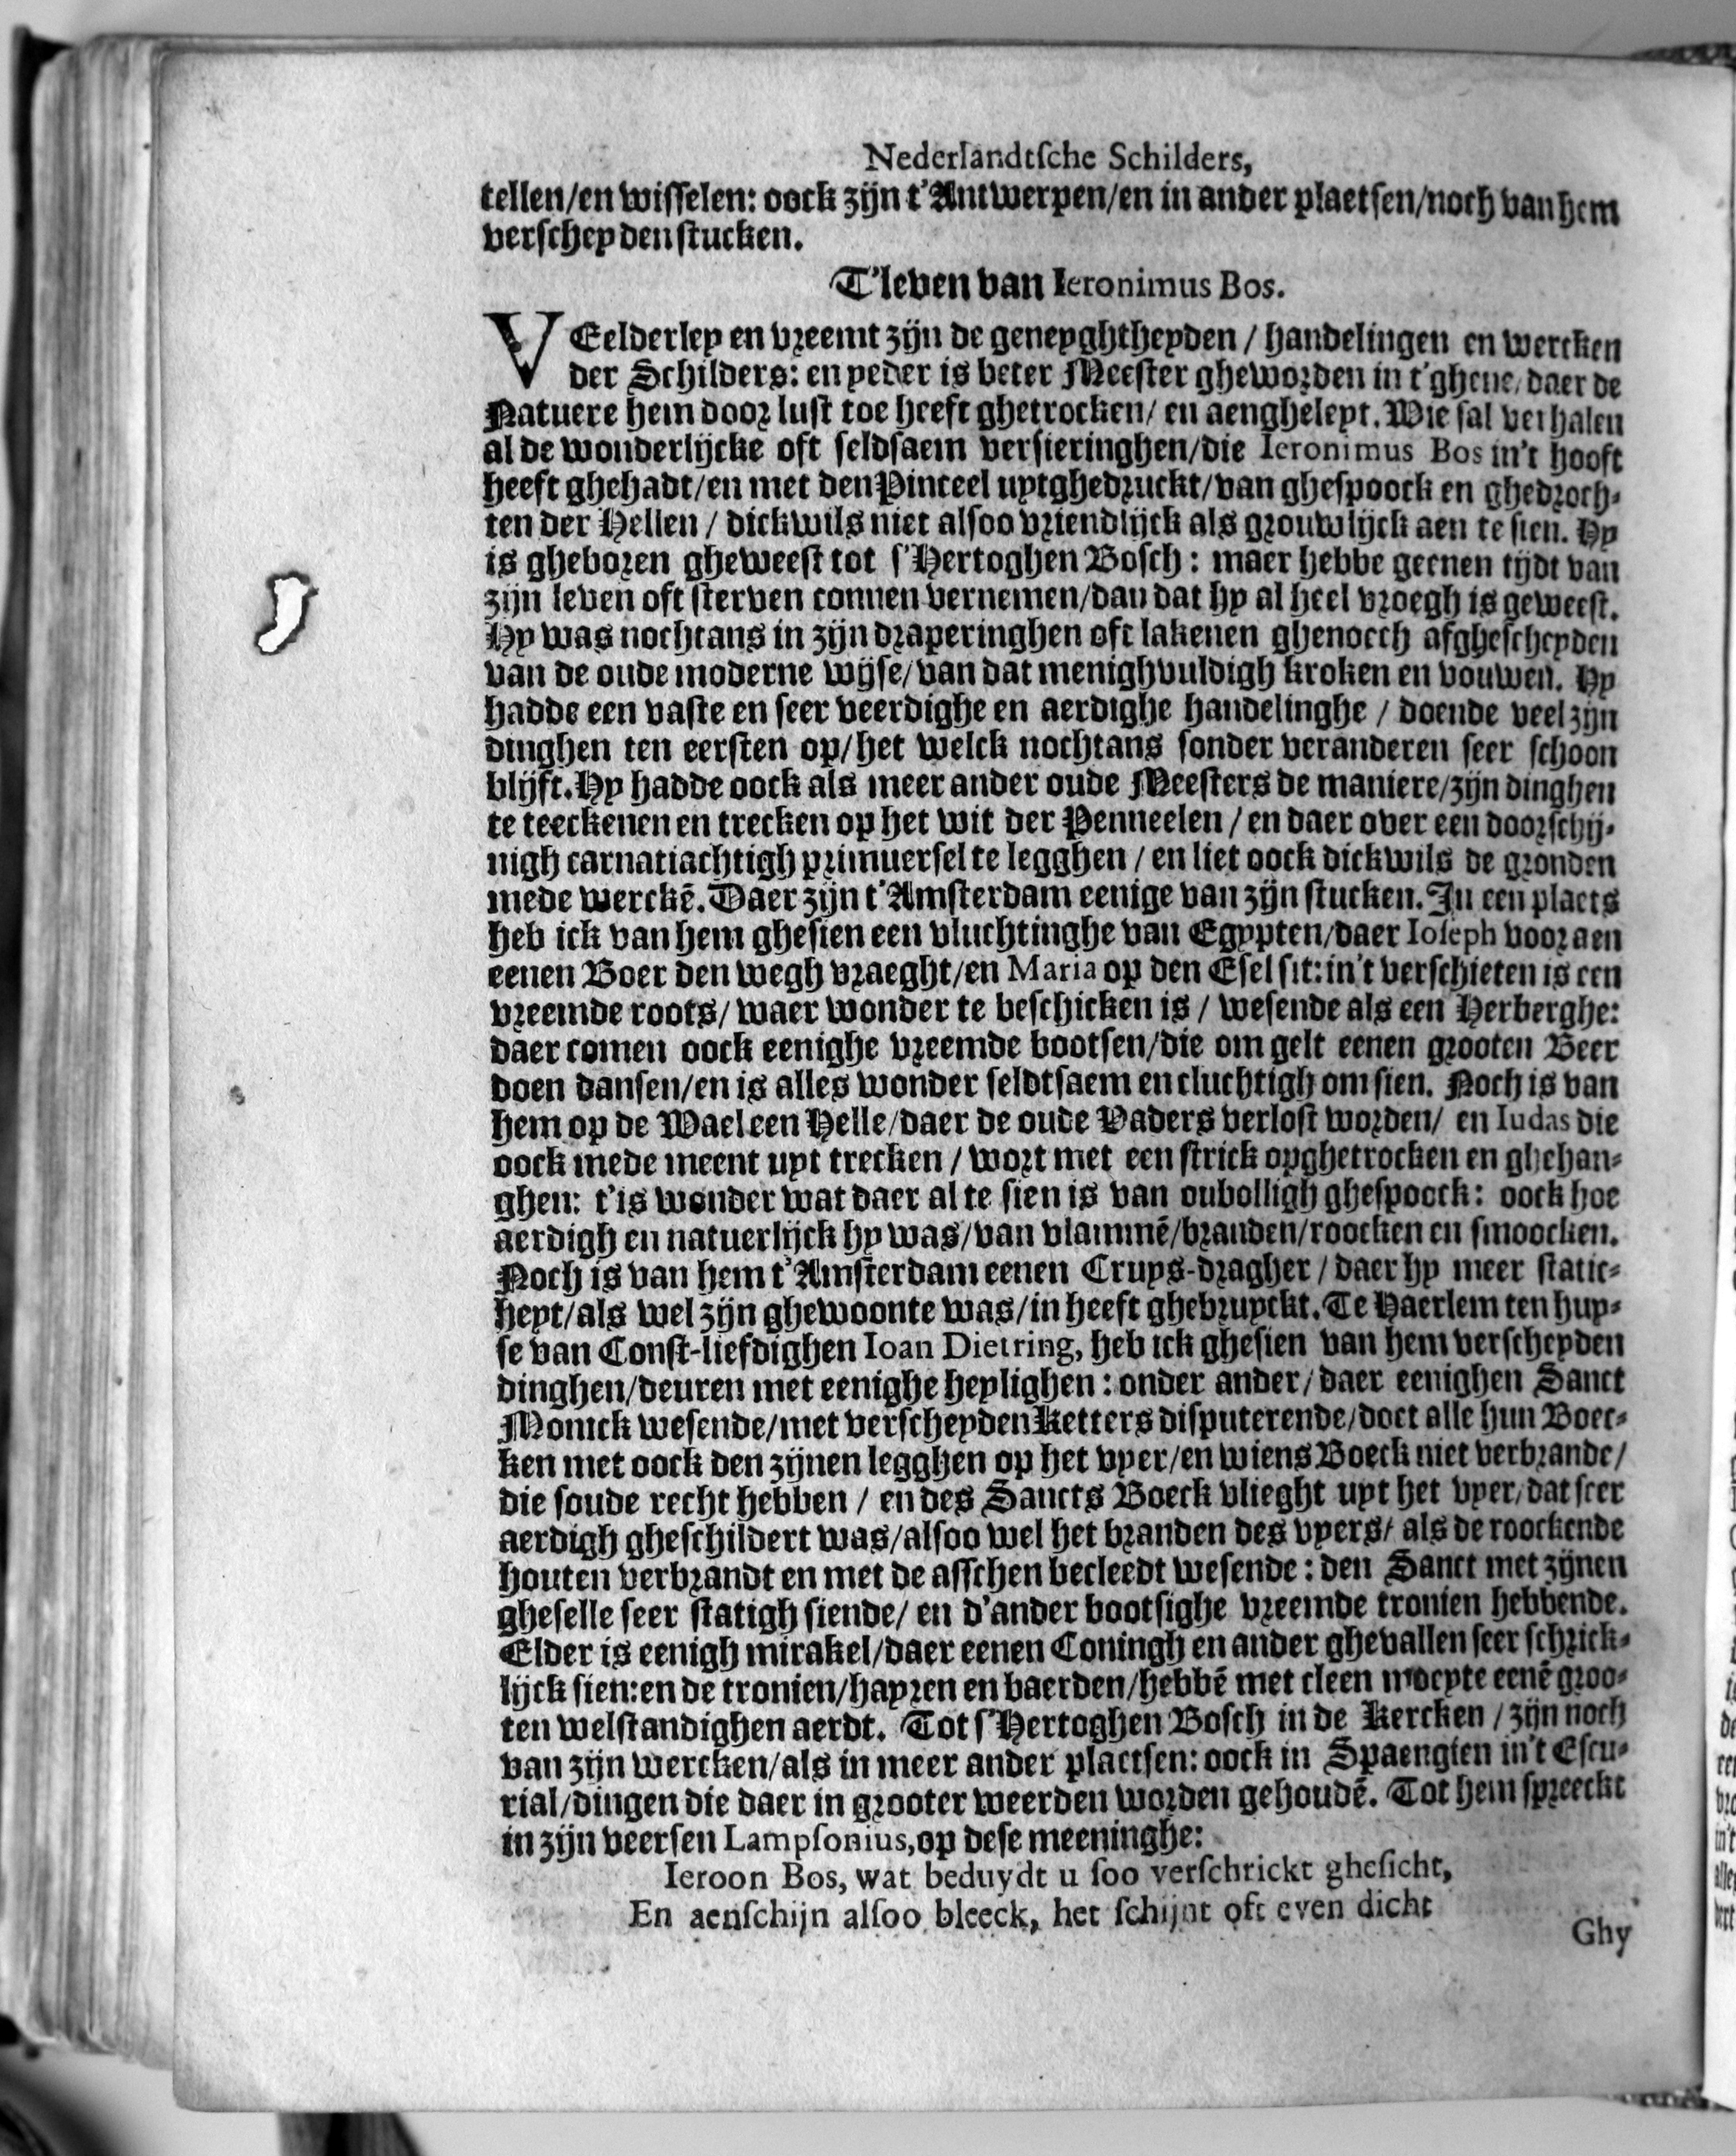 Nederlandtsche Schilders,
tellen/en wisselen: oock zijn t'Antwerpen/en in ander plaetsen/noch van hem
verscheyden stucken.
T'leven van Ieronimus Bos.
VEelderley en vreemt zijn de geneyghtheyden / handelingen en wercken
der Schilders: en yeder is beter Meester gheworden in t'ghene/daer de
Natuere hem door lust toe heeft ghetrocken/ en aengheleyt. Wie sal verhalen
al de wonderlijcke oft seldsaem versieringhen/die Ieronimus Bos in't hooft
heeft ghehadt/en met den Pinceel uytghedruckt/van ghespoock en ghedroch-
ten der Hellen / dickwils niet alsoo vriendlijck als grouwlijck aen te sien. Hy
is gheboren gheweest tot s'Hertoghen Bosch: maer hebbe geenen tijdt van
zijn leven oft sterven connen vernemen/dan dat hy al heel vroegh is geweest.
Hy was nochtans in zijn draperinghen oft lakenen ghenoech afghescheyden
van de oude moderne wijse/van dat menighvuldigh kroken en vouwen. Hy
hadde een vaste en seer veerdighe en aerdighe handelinghe / doende veel zijn
dinghen ten eersten op/het welck nochtans sonder veranderen seer schoon
blijft. Hy hadde oock als meer ander oude Meesters de maniere/zijn dinghen
te teeckenen en trecken op het wit der Penneelen / en daer over een doorschij-
nigh carnatiachtigh primuersel te legghen / en liet oock dickwils de gronden
mede werckē. Daer zijn t'Amsterdam eenige van zijn stucken. In een plaets
heb ick van hem ghesien een vluchtinghe van Egypten/daer Ioseph voor aen
eenen Boer den wegh vraeght/en Maria op den Esel sit: in't verschieten is een
vreemde roots/ waer wonder te beschicken is / wesende als een Herberghe:
daer comen oock eenighe vreemde bootsen/die om gelt eenen grooten Beer
doen dansen/en is alles wonder seldtsaem en cluchtigh om sien. Noch is van
hem op de Wael een Helle/daer de oude Vaders verlost worden/ en Iudas die
oock mede meent uyt trecken / wort met een strick opghetrocken en ghehan-
ghen: t'is wonder wat daer al te sien is van oubolligh ghespoock: oock hoe
aerdigh en natuerlijck hy was/van vlammē/branden/roocken en smoocken.
Noch is van hem t'Amsterdam eenen Cruys-dragher / daer hy meer static-
heyt/als wel zijn ghewoonte was/in heeft ghebruyckt. Te Haerlem ten huy-
se van Const-liefdighen Ioan Dietring, heb ick ghesien van hem verscheyden
dinghen/deuren met eenighe heylighen: onder ander/daer eenighen Sanct
Monick wesende/met verscheyden Ketters disputerende/doet alle hun Boec-
ken met oock den zijnen legghen op het vyer/en wiens Boeck niet verbrande/
die soude recht hebben / en des Sancts Boeck vlieght uyt het vyer/dat seer
aerdigh gheschildert was/alsoo wel het branden des vyers/ als de roockende
houten verbrandt en met de asschen becleedt wesende: den Sanct met zijnen
gheselle seer statigh siende/ en d'ander bootsighe vreemde tronien hebbende.
Elder is eenigh mirakel/daer eenen Coningh en ander ghevallen seer schrick-
lijck sien: en de tronien/hayren en baerden/hebbē met cleen moeyte eenē groo-
ten welstandighen aerdt. Tot s'Hertoghen Bosch in de Kercken / zijn noch
van zijn wercken/als in meer ander plaetsen: oock in Spaengien in't Escu-
rial/dingen die daer in grooter weerden worden gehoudē. Tot hem spreeckt
in zijn veersen Lampsonius, op dese meeninghe:
Ieroon Bos, wat beduydt u soo verschrickt ghesicht,
En aenschijn alsoo bleeck, het schijnt oft even dicht
Ghy